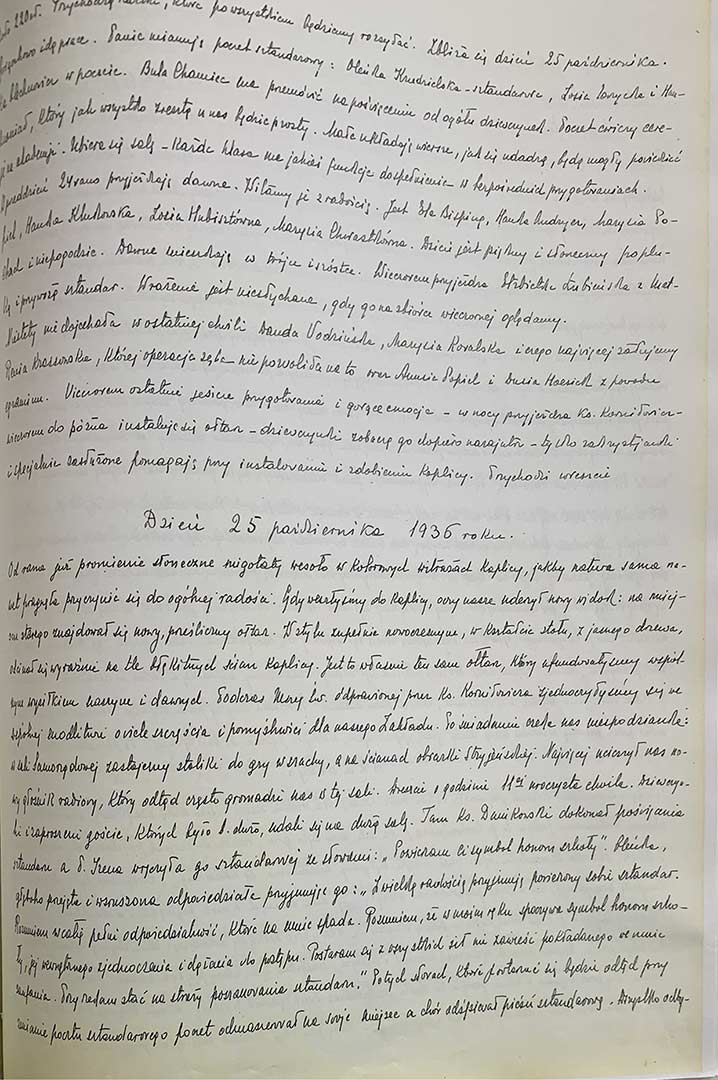 220 zł. Przychodzą które po wszystkiem będziemy rozsyłać. Zbliża się dzień 25 października.
idą prace. Panie mianują poczet sztandarowy: Oleńka Krudzielska – sztandarowa, Zosia i Han-
w poczcie. Buba Chamiec ma przemówić na poświęceniu od ogółu dziewcynek. Poczet ćwiczy cere-
moniał, który jak wszystko zresztą u nas będzie prosty. Mała układają wiersze, jak się udadzą, będę mogły powiedzieć
na akademji. Ubiera się salę – każda klasa ma jakieś funkcje do spełnienia w bezpośrednich przygotowaniach.
W przeddzień 24 rano przyjeżdżają dawne. Witamy je z radością. Jest Ela Bisping, Hanka Marysia Po-
piel, Handa Kłudowska, Zosia Hubisztówna, Marysia Chrzastkówna. Dzień jest piękny i słoneczny po plu-
chach i niepogodzie. Dawne mieszkają w trójce i szóstce. Wieczorem przyjeżdża Elżbietka Łubieńska z Mat-
ką i przywożą sztandar. Wrażenie jest niesłychane, gdy go na zbiórce wieczornej oglądamy.
Niestety nie dojechała w ostatniej chwili Wanda Wodzińska, Marysia Kowalska i czego najwięcej żałujemy
Renia Krassowska, której operacja zęba nie pozwoliła na to oraz Anusia Popiel i Dusia Haesick z powodu
egzaminu. Wieczorem ostatnie jeszcze przygotowania i gorące emocje – w nocy przyjeżdża Ks. Korniłowicz –
wieczorem do późna instaluje się ołtarz – dziewczynki zobaczą go dopiero nazajutrz – tylko zakrystjanki
i specjalnie zasłużone pomagają przy instalowaniu i zdobieniu Kaplicy. Przychodzi wreszcie
Dzień 25 października 1936 roku.
Od rana już promienie słoneczne migotały wesoło w kolorowych witrażach Kaplicy, jakby natura sama na-
wet pragnęła przyczynić się do ogólnej radości. Gdy weszłyśmy do Kaplicy, oczy nasze uderzył nowy widok: na miej-
scu starego znajdował się nowy, prześliczny ołtarz. W stylu zupełnie nowoczesnym, w kształcie stołu, z jasnego drzewa,
odcinał się wyraźnie na tle błękitnych ścian Kaplicy. Jest to właśnie ten sam ołtarz, który ufundowałyśmy wspól-
nym wysiłkiem naszym i dawnych. Podczas Mszy św. odprawionej przez Ks. Korniłowicza zjednoczyłyśmy się we
wspólnej modlitwie o wiele szczęścia i pomyślności dla naszego Zakładu. Po śniadaniu czeka nas niespodzianka:
w sali Samorządowej zastajemy stoliki do gry w szachy, a na ścianach obrazki Stryjeńskiej. Najwięcej ucieszył nas no-
wy głośnik radjowy, który odtąd często gromadzi nas w tej sali. Wreszcie o godzinie 11ej uroczysta chwila. Dziewczyn-
ki i zaproszeni goście, których było b. dużo, udali się na dużą salę. Tam Ks. Dunikowski dokonał poświęcenia
sztandaru a P. Irena wręczyła go sztandarowej ze słowami: „Powierzam Ci symbol honoru szkoły". Oleńka,
głęboko przejęta i wzruszona odpowiedziała przyjmując go: „Z wielką radością przyjmuję powierzony sobie sztandar.
Rozumiem w całej pełni odpowiedzialność, która na mnie spada. Rozumiem, że w moim ręku spoczywa symbol honoru szko-
ły, jej wewnętrznego zjednoczenia i dążenia do postępu. Postaram się z wszystkich sił nie zawieść pokładanego we mnie
zaufania. Przyrzekam stać na straży poszanowania sztandaru." Po tych słowach, które powtarzać się będzie odtąd przy
zmianie pocztu sztandarowego poczet odmaszerował na swoje miejsce a chór odśpiewał pieśń sztandarową. Wszystko odby-